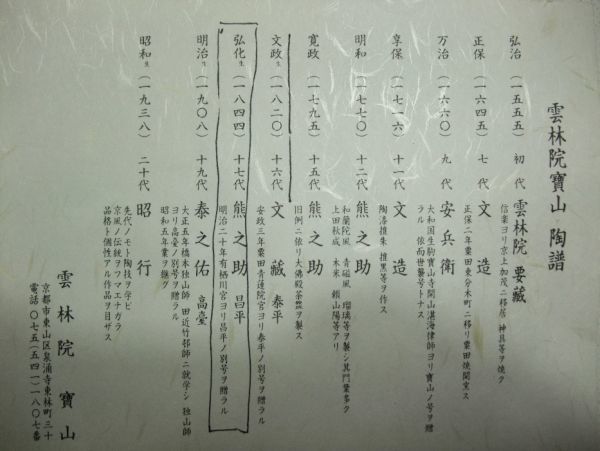 雲林院寶山 陶譜
弘治（一五五五） 初代 雲林院 要藏
信楽ヨリ京上加茂ニ移居 神具等ヲ焼ク
正保（一六四五） 七代 文造
正保二年粟田東分木町ニ移リ粟田焼開窯ス
万治（一六六〇） 九代 安兵衛
大和国生駒寶山寺開山湛海律師ヨリ寶山ノ号ヲ贈
ラル 依而世襲号トナス
享保（一七一六） 十一代 文造
陶漆推朱 推黒等ヲ作ス
明和（一七七〇） 十二代 熊之助
和蘭陀風 青磁風 瑠璃等ヲ製シ其門葉多ク
上田秋成 木米 頼山陽等アリ
寛政（一七九五） 十五代 熊之助
旧例ニ依リ大佛殿茶器ヲ製ス
文政生（一八二〇） 十六代 文藏 泰平
安政三年粟田青蓮院宮ヨリ泰平ノ別号ヲ贈ラル
弘化生（一八四四） 十七代 熊之助 昌平
明治二十年有栖川宮ヨリ昌平ノ別号ヲ贈ラル
明治生（一九〇八） 十九代 泰之佑 高臺
大正五年橋本独山師 田近竹邨師ニ就学シ 独山師
ヨリ高臺ノ別号ヲ贈ラル
昭和五年業ヲ継グ
昭和生（一九三八） 二十代 昭行
先代ノモト陶技ヲ学ビ
京風ノ伝統ヲフマエナガラ
品格ト個性アル作品ヲ目ザス
雲林院 寶山
京都市東山区泉涌寺東林町三十
電話 〇七五（五四一）一八〇七番